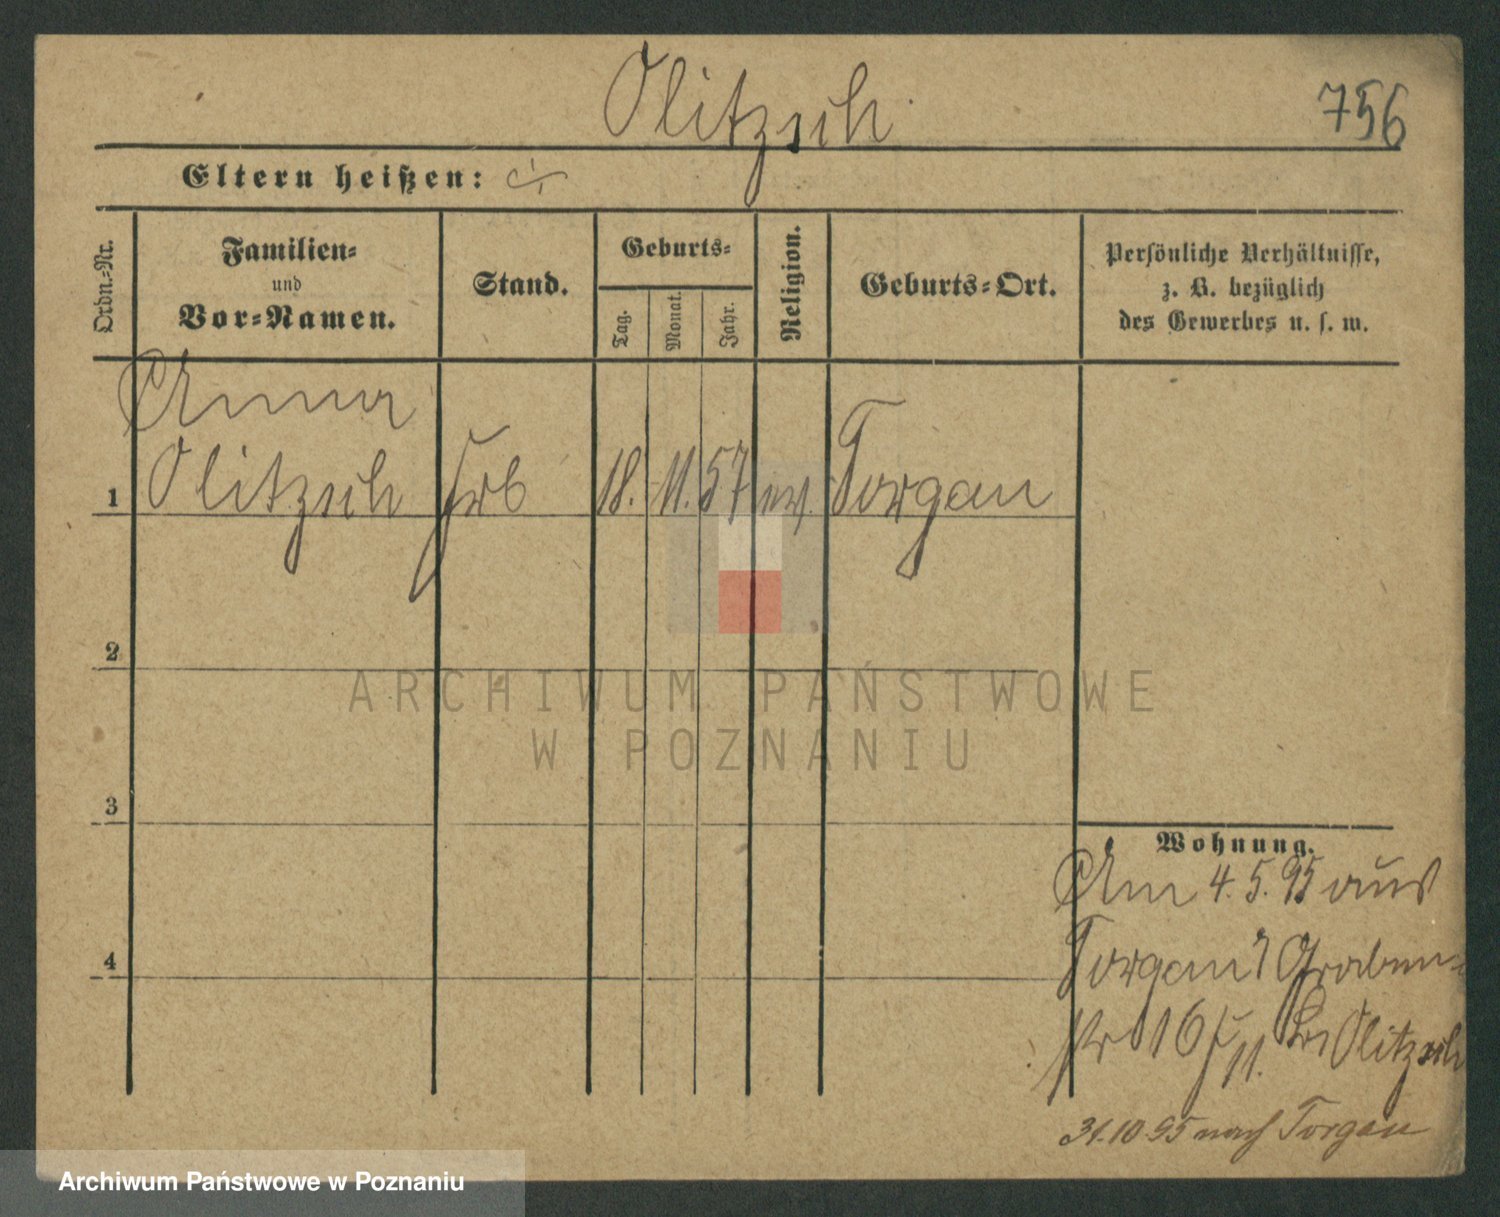 Olitzsch
756
Eltern heißen:
Ordn.-Nr.
Familien-
und
Vor-Namen.
Stand.
Geburts-
Tag.
Monat.
Jahr.
Religion.
Geburts-Ort.
Persönliche Verhältnisse,
z. B. bezüglich
des Gewerbes u. s. w.
Anna
1 Olitzsch 18. 11. 57 ev. Torgau
2
3
4
Wohnung.
Am 4.5.95 aus
Torgau Graben-
str 16 Olitzsch
31.10.95 nach Torgau
ARCHIWUM PAŃSTWOWE
W POZNANIU
Archiwum Państwowe w Poznaniu